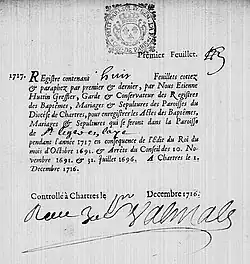 Premier Feuillet.
1717. Registre contenant huit Feuillets cottez
& paraphez par premier & dernier, par Nous Etienne
Huttin Greffier, Garde & Conservateur des Registres
des Baptêmes, Mariages & Sepultures des Paroisses du
Diocese de Chartres, pour enregistrer les Actes des Baptêmes,
Mariages & Sepultures qui se feront dans la Paroisse
de St
pendant l'année 1717 en consequence de l'Edit du Roi du
mois d'Octobre 1691. & Arrêts du Conseil des 10. No-
vembre 1691. & 31. Juillet 1696. A Chartres le 1.
Decembre 1716.
Controllé à Chartres le 1er Decembre 1716.